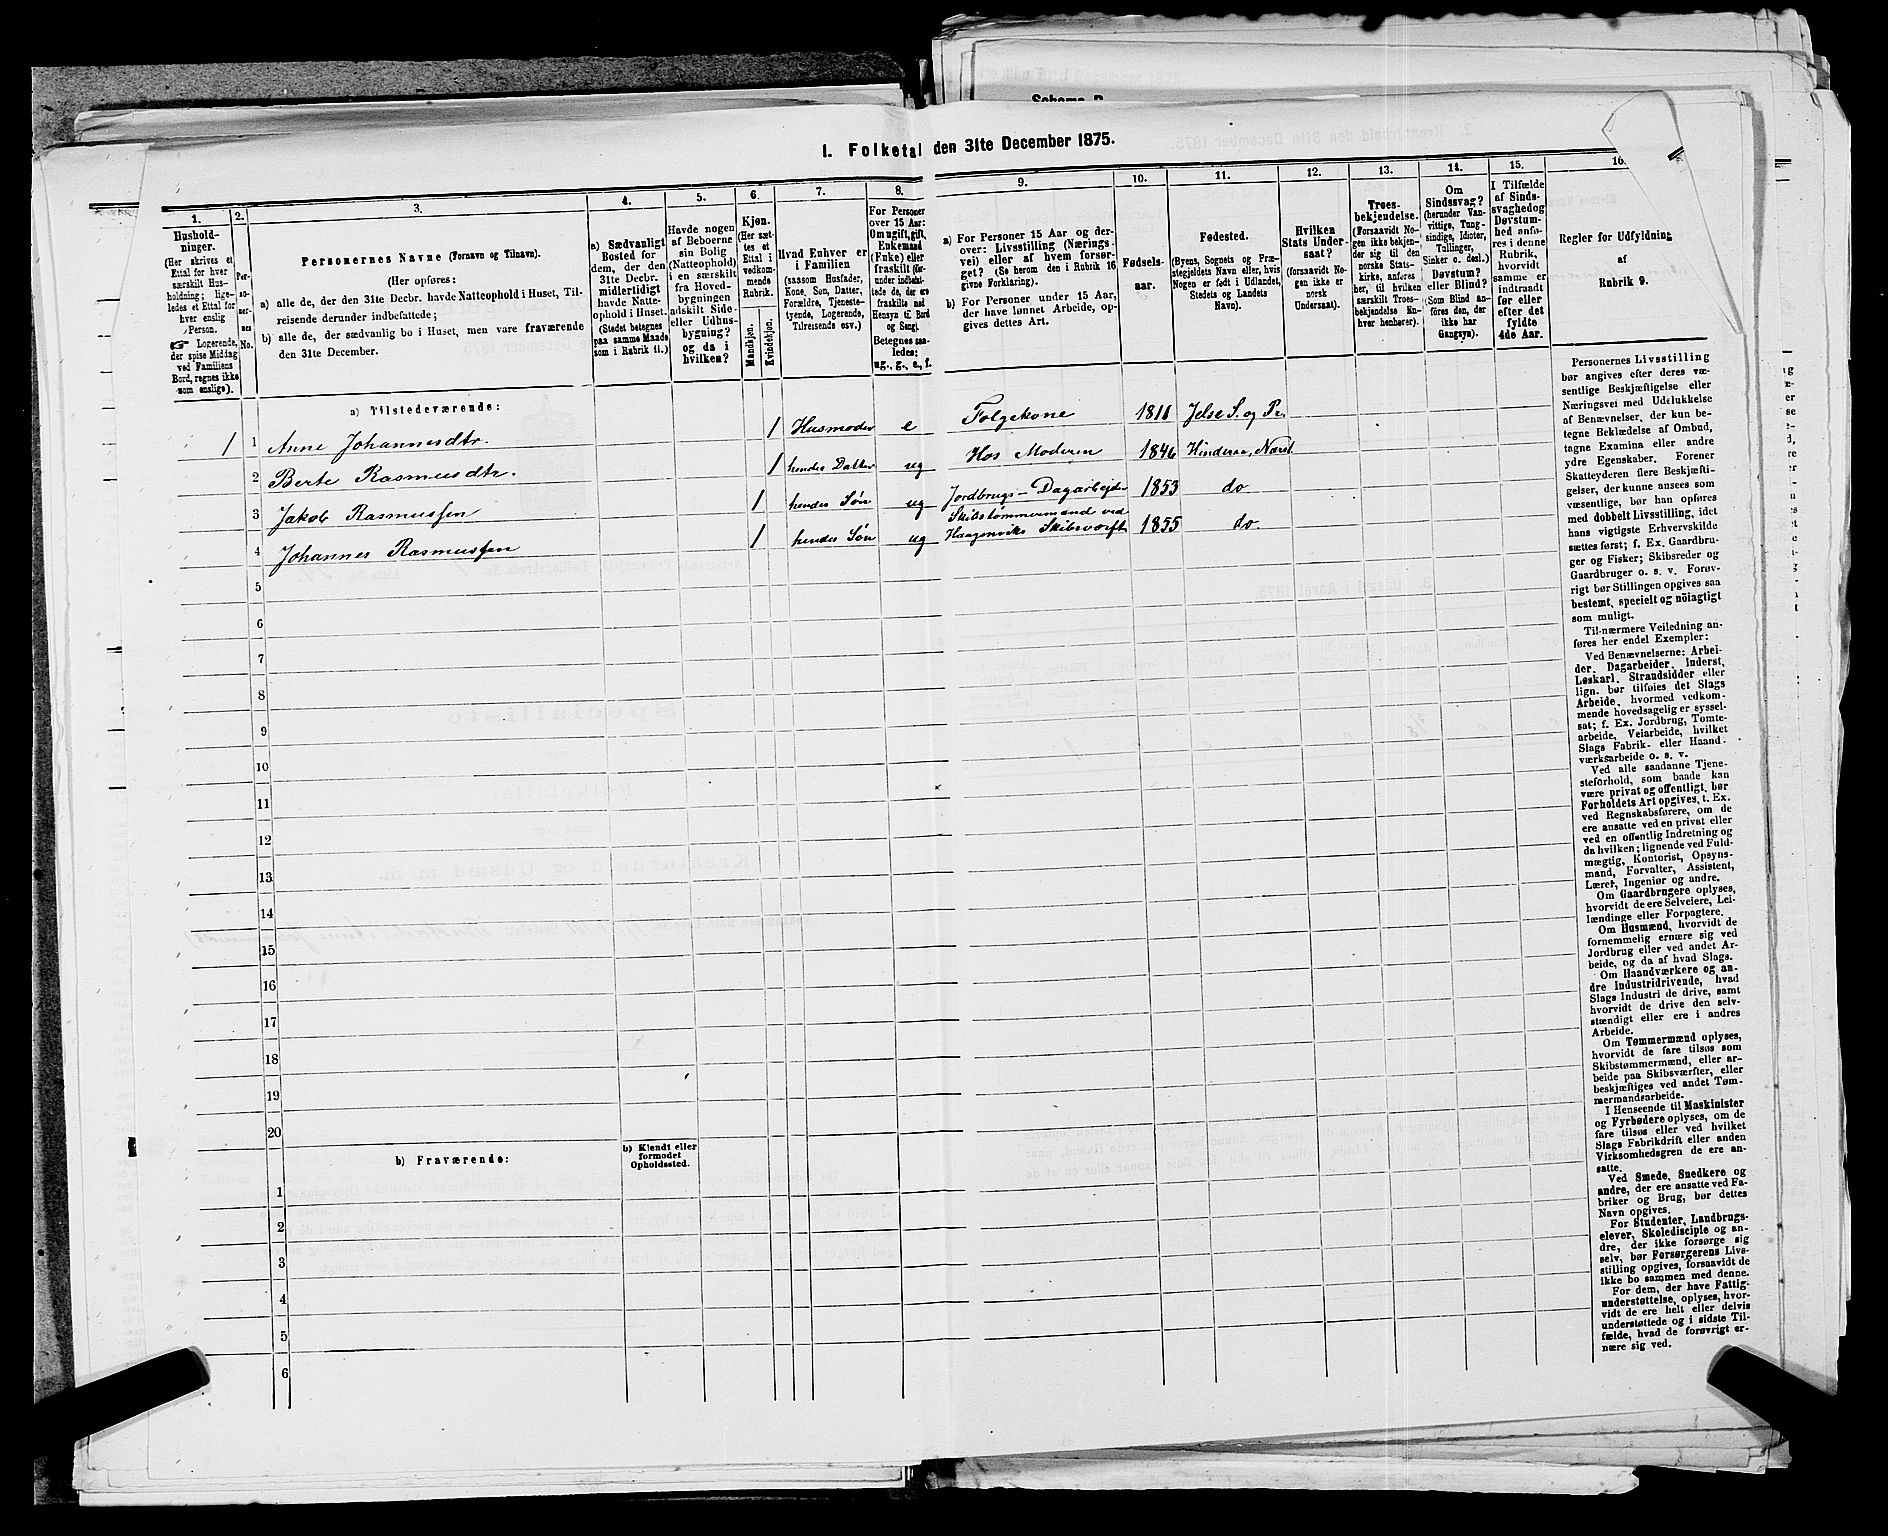 Schema B
I. Folketal den 31te December 1875.
1.
Hushold-
ninger.
(Her skrives et
Ettal for hver
særskilt Hus-
holdning; lige-
ledes et Ettal for
hver enslig
Person.
☞ Logerende,
der spise Middag
ved Familiens
Bord, regnes ikke
som enslige).
2.
Per-
so-
ner-
nes
No.
3.
Personernes Navne (Fornavn og Tilnavn).
(Her opføres:
a) alle de, der den 31te Decbr. havde Natteophold i Huset, Til-
reisende derunder indbefattede;
b) alle de, der sædvanlig bo i Huset, men vare fraværende
den 31te December.
4.
a) Sædvanligt
Bosted for
dem, der den
31te Decbr.
midlertidigt
havde Natte-
ophold i Huset.
(Stedet betegnes
paa samme Maade
som i Rubrik 11.)
5.
Havde nogen
af Beboerne
sin Bolig
(Natteophold)
i en særskilt
fra Hoved-
bygningen
adskilt Side-
eller Udhus-
bygning?
og da i
hvilken?
6.
Kjøn.
(Her sæt-
tes et
Ettal i
vedkom-
mende
Rubrik.
Mandkjøn.
Kvindekjøn.
7.
Hvad Enhver er
i Familien
(saasom Husfader,
Kone, Søn, Datter,
Forældre, Tjeneste-
tyende, Logerende,
Tilreisende osv.)
8.
For Personer
over 15 Aar:
Om ugift, gift,
Enkemand
(Enke) eller
fraskilt (her-
under indbefat-
tede de, der ere
fraskilte med
Hensyn til Bord
og Seng).
Betegnes saa-
ledes:
ug., g., e., f.
9.
a) For Personer 15 Aar og der-
over: Livsstilling (Nærings-
vei) eller af hvem forsør-
get? (Se herom den i Rubrik 16
givne Forklaring).
b) For Personer under 15 Aar,
der have lønnet Arbeide, op-
gives dettes Art.
10.
Fødsels-
aar.
11.
Fødested.
(Byens, Sognets og Præ-
stegjeldets Navn eller, hvis
Nogen er født i Udlandet,
Stedets og Landets
Navn).
12.
Hvilken
Stats Under-
saat?
(foraavidt No-
gen ikke er
norsk
Undersaat).
13.
Troes-
bekjendelse.
(Forsaavidt No-
gen ikke bekjen-
der sig til den
norske Stats-
kirke, anføres
her, til hvilken
særskilt Troes-
bekjendelse En-
hver henhører).
14.
Om
Sindssvag?
(herunder Van-
vittige, Tung-
sindige, Idioter,
Tullinger,
Sinker o. desl.)
Døvstum?
eller Blind?
(Som Blind an-
føres den, der
ikke har
Gangsyn).
15.
I Tilfælde
af Sinds-
svaghed og
Døvstum-
hed anfø-
res i denne
Rubrik,
hvorvidt
samme er
indtraadt
før eller
efter det
fyldte
4de Aar.
16.
Regler for Udfyldning
af
Rubrik 9.
a) Tilstedeværende:
1 1 Anne Johannesdtr. 1 Husmoder e Folgekone 1811 Jelse S. og Pr.
2 Berte Rasmusdtr. 1 hendes Datter ug Hos Moderen 1846 Hinderaa, Nærst.
3 Jakob Rasmussen 1 hendes Søn ug Jordbrugs-Dagarbejder 1853 do
Skibstømmermand ved
4 Johannes Rasmussen 1 hendes Søn ug Haagenviks Skibsværft 1855 do.
5
6
7
8
9
10
11
12
13
14
15
16
17
18
19
20
b) Fraværende:
b) Kjendt eller
formodet
Opholdssted.
1
2
3
4
5
6
Personernes Livsstilling
bør angives efter deres væ-
sentlige Beskjæftigelse eller
Næringsvei med Udelukkelse
af Benævnelser, der kun be-
tegne Beklædelse af Ombud,
tagne Examina eller andre
ydre Egenskaber. Forener
Skatteyderen flere Beskjæfti-
gelser, der kunne ansees som
væsentlige, bør han opføres
med dobbelt Livsstilling, idet
hans vigtigste Erhvervskilde
sættes først; f. Ex. Gaardbru-
ger og Fisker; Skibsreder og
Gaardbruger o. s. v. Forøv-
rigt bør Stillingen opgives saa
bestemt, specielt og nöiagtigt
som muligt.
Til nærmere Veiledning an-
føres her endel Exempler:
Ved Benævnelserne: Arbei-
der, Dagarbeider, Inderst,
Løskarl, Strandsidder eller
lign. bør tilføies det Slags
Arbeide, hvormed vedkom-
mende hovedsagelig er syssel-
sat; f. Ex. Jordbrug, Tomte-
arbeide, Veiarbeide, hvilket
Slags Fabrik- eller Haand-
værksarbeide o. s. v.
Ved alle saadanne Tjene-
steforhold, som baade kan
være privat og offentligt, bør
Forholdets Art opgives, t. Ex.
ved Regnskabsførere, om de
ere ansatte ved en privat eller
ved en offentlig Indretning og
da hvilken; lignende ved Fuld-
mægtig, Kontorist, Opsyns-
mand, Forvalter, Assistent,
Læret, Ingeniør og andre.
Om Gaardbrugere oplyses,
hvorvidt de ere Selveiere, Lei-
lændinge eller Forpagtere.
Om Husmænd, hvorvidt de
fornemmelig ernære sig ved
Jordbrug eller ved andet Ar-
beide, og da af hvad Slags.
Om Haandværkere og an-
dre Industridrivende, hvad
Slags Industri de drive, samt
hvorvidt de drive den selv-
stændigt eller ere i andres
Arbeide.
Om Tømmermænd oplyses,
hvorvidt de fare tilsøs som
Skibstømmermænd, eller ar-
beide paa Skibsværfter, eller
beskjæftiges ved andet Tøm-
mermandsarbeide.
I Henseende til Maskinister
og Fyrbødere oplyses, om de
fare tilsøs eller ved hvilket
Slags Fabrikdrift eller anden
Virksomhedsgren de ere an-
satte.
Ved Smede, Snedkere og
andre, der ere ansatte ved Fa-
briker og Brug, bør dettes
Navn opgives.
For Studenter, Landbrugs-
elever, Skoledisciple og an-
dre, der ikke forsørge sig
selv, bør Forsørgerens Livs-
stilling opgives, forsaavidt de
ikke bo sammen med denne.
For dem, der have Fattig-
understøttelse, oplyses, hvor-
vidt de ere helt eller delvis
understøttede og i sidste Til-
fælde, hvad de forøvrigt er-
nære sig ved.